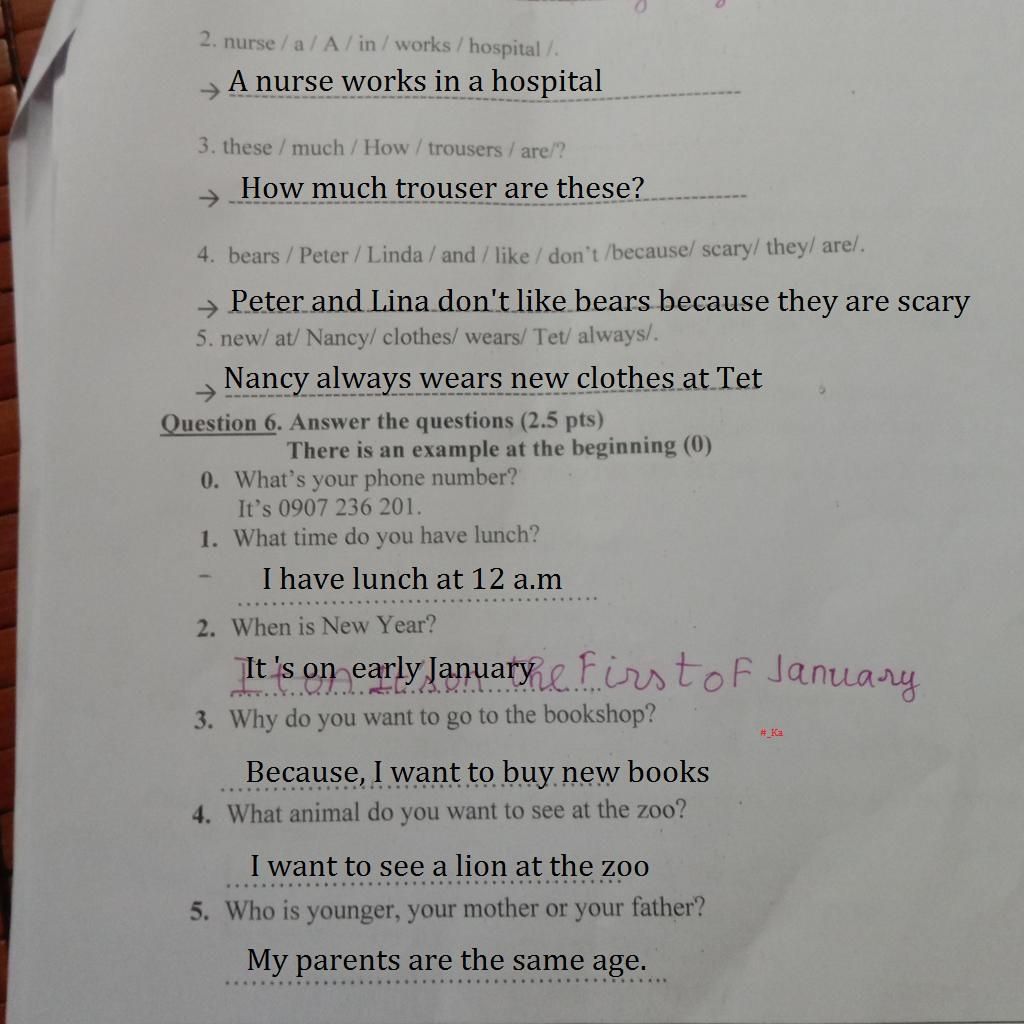 2. nurse / a / A / in / works / hospital /.
→ A nurse works in a hospital
3. these / much / How / trousers / are/?
→ How much trouser are these?
4. bears / Peter / Linda / and / like / don't /because/ scary/ they/ are/.
→ Peter and Lina don't like bears because they are scary
5. new/ at/ Nancy/ clothes/ wears/ Tet/ always/.
→ Nancy always wears new clothes at Tet
Question 6. Answer the questions (2.5 pts)
There is an example at the beginning (0)
0. What's your phone number?
It's 0907 236 201.
1. What time do you have lunch?
– I have lunch at 12 a.m
2. When is New Year?
It 's on early January
It on It's on the First of January
3. Why do you want to go to the bookshop?
#_Ka
Because, I want to buy new books
4. What animal do you want to see at the zoo?
I want to see a lion at the zoo
5. Who is younger, your mother or your father?
My parents are the same age.